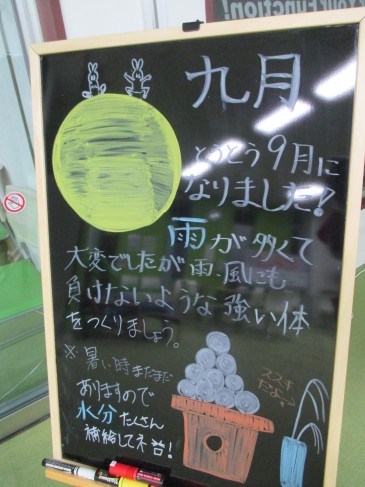 Your Function!
九月
とうとう9月に
なりました!
雨が多くて
大変でしたが雨、風にも
負けないような強い体
をつくりましょう。
※暑い時まだまだ
ありますので
水分たくさん
補給して下さい!
ススキ
だよー